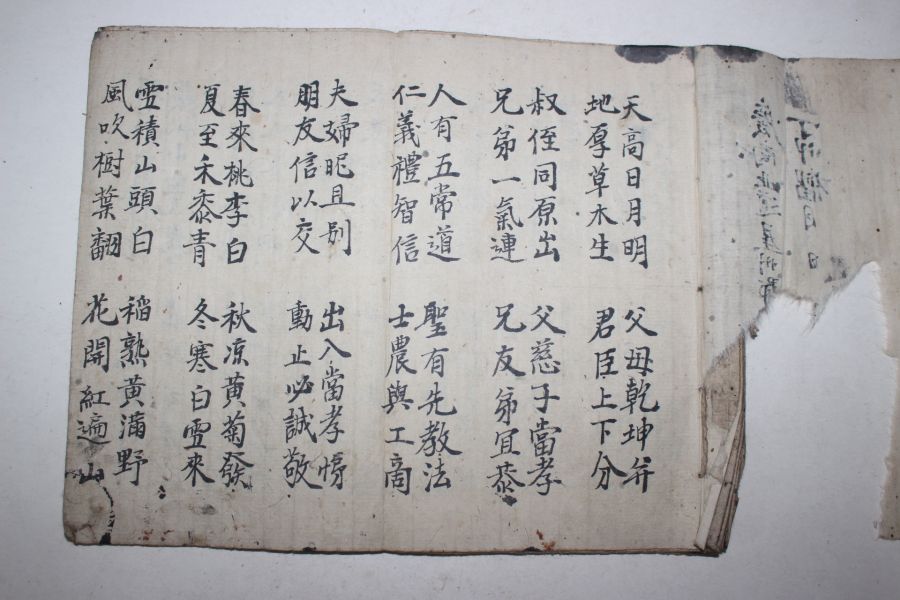 天高日月明
地厚草木生
父母乾坤并
君臣上下分
叔侄同原出
兄弟一氣連
父慈子當孝
兄友弟宜恭
人有五常道
仁義禮智信
聖有先教法
士農與工商
夫婦昵且別
朋友信以交
出入當孝悌
動止必誠敬
春來桃李白
夏至禾黍青
秋凉黄菊發
冬寒白雪來
雪積山頭白
風吹樹葉翻
稻熟黄滿野
花開紅遍山